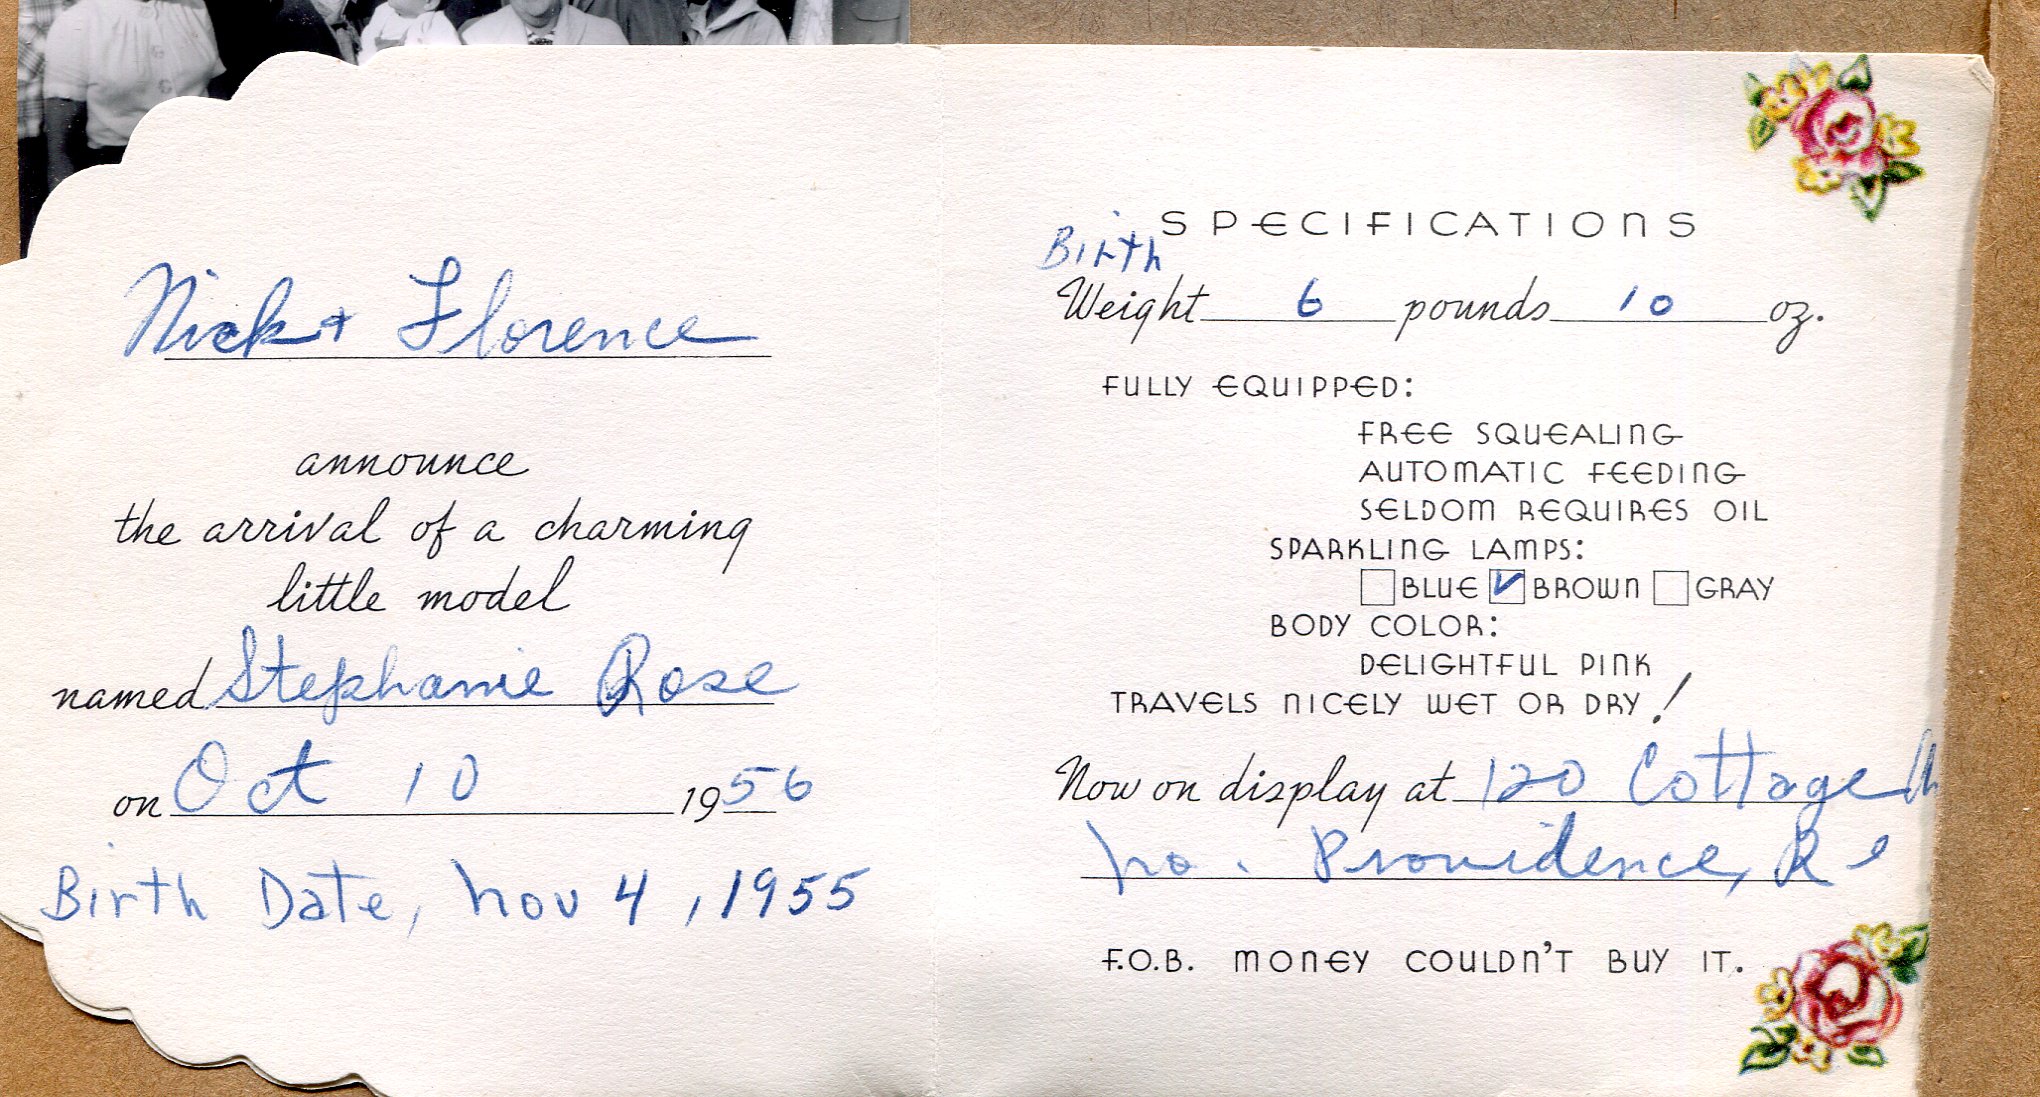 Nick + Florence
announce
the arrival of a charming
little model
named Stephanie Rose
on Oct 10 1956
Birth Date, Nov 4, 1955
SPECIFICATIONS
Birth
Weight 6 pounds 10 oz.
FULLY EQUIPPED:
FREE SQUEALING
AUTOMATIC FEEDING
SELDOM REQUIRES OIL
SPARKLING LAMPS:
BLUE BROWN GRAY
BODY COLOR:
DELIGHTFUL PINK
TRAVELS NICELY WET OR DRY!
Now on display at 120 Cottage
No. Providence, R I
F.O.B. MONEY COULDN'T BUY IT.